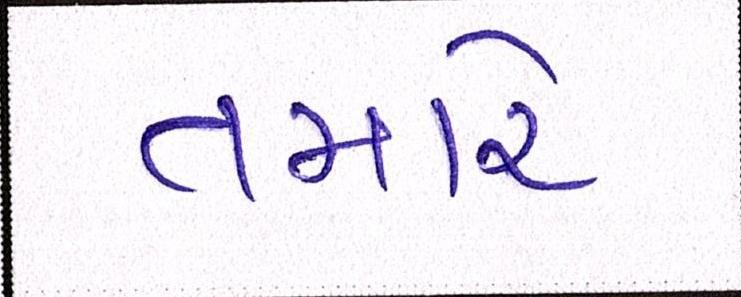 તમારે